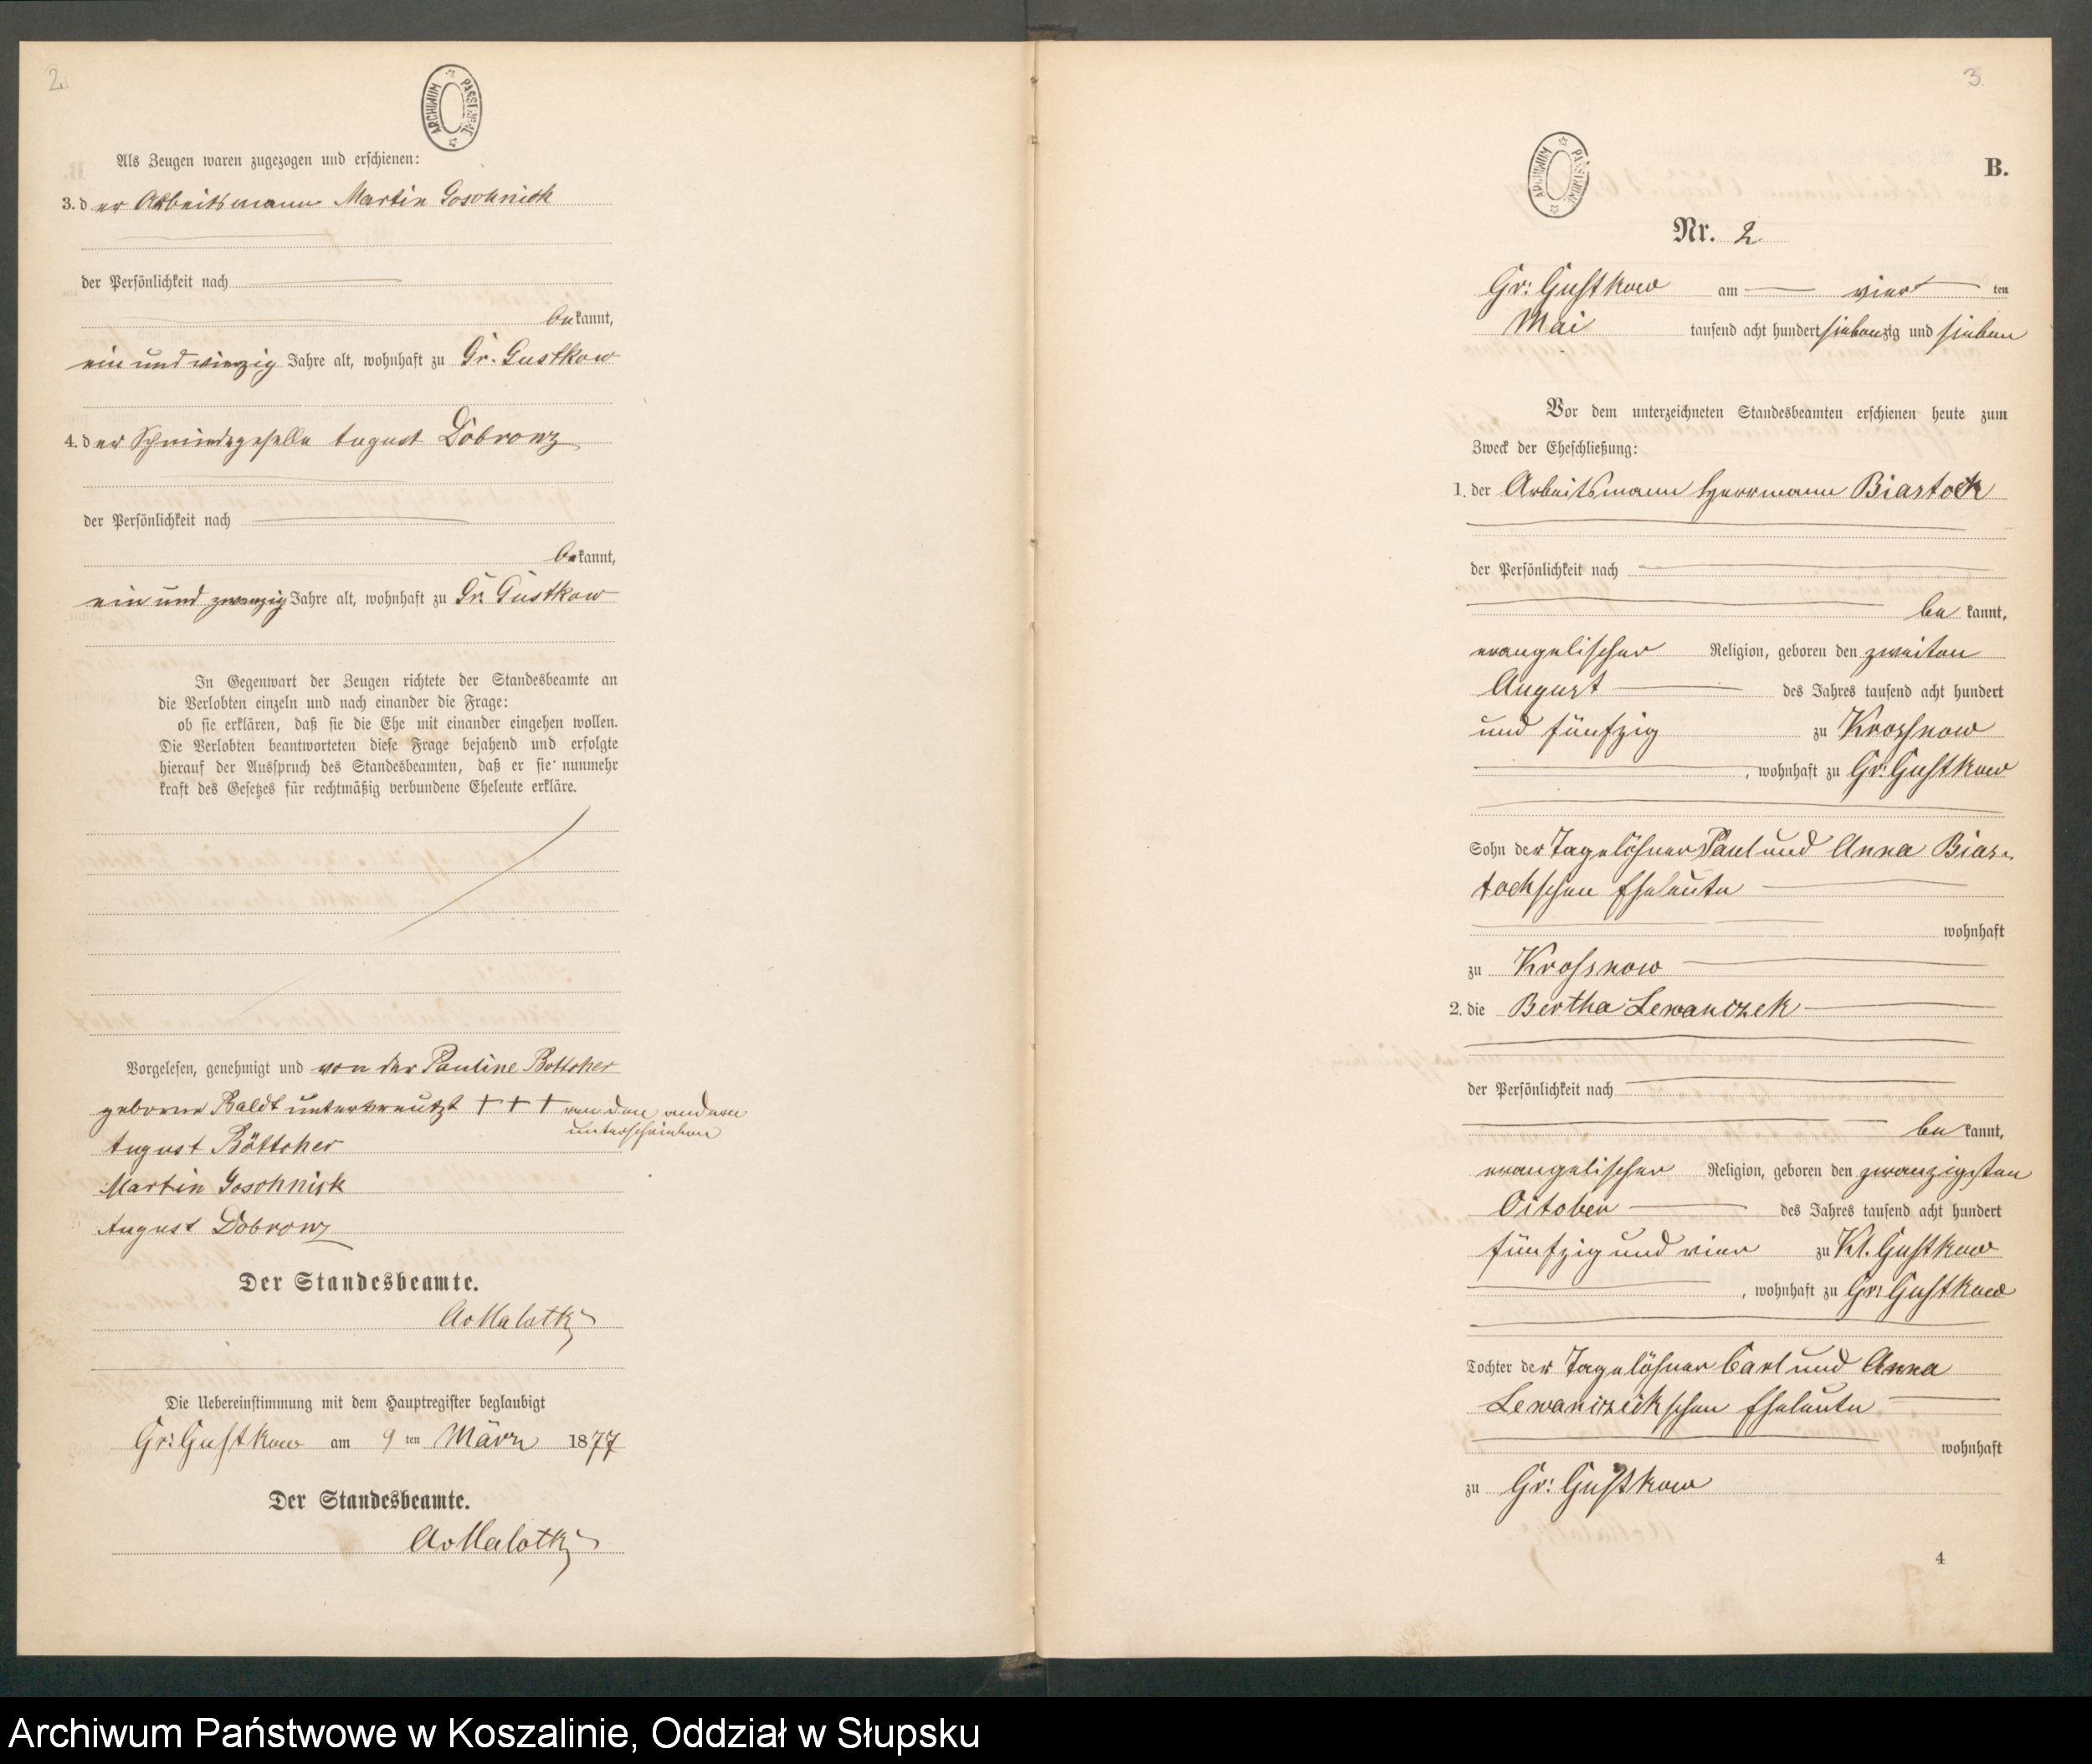 2.
ARCHIWUM PAŃSTWOWE
Als Zeugen waren zugezogen und erschienen:
3. der Arbeitsmann Martin Goschnick
der Persönlichkeit nach
bekannt,
ein und vierzig Jahre alt, wohnhaft zu Gr. Gustkow
4. der Schmiedegeselle August Dobronz
der Persönlichkeit nach
bekannt,
ein und zwanzig Jahre alt, wohnhaft zu Gr. Gustkow
In Gegenwart der Zeugen richtete der Standesbeamte an
die Verlobten einzeln und nach einander die Frage:
ob sie erklären, daß sie die Ehe mit einander eingehen wollen.
Die Verlobten beantworteten diese Frage bejahend und erfolgte
hierauf der Ausspruch des Standesbeamten, daß er sie nunmehr
kraft des Gesetzes für rechtmäßig verbundene Eheleute erkläre.
Vorgelesen, genehmigt und von der Pauline Bottcher
geborne Baldt unterkreutzt + + + von den andern
unterschrieben
August Böttcher
Martin Goschnick
August Dobronz
Der Standesbeamte.
AvMalotky
Die Uebereinstimmung mit dem Hauptregister beglaubigt
Gr: Gustkow am 9 ten März 1877
Der Standesbeamte.
AvMalotky
3.
ARCHIWUM PAŃSTWOWE
B.
Nr. 2.
Gr: Gustkow am vier ten
Mai tausend acht hundert siebenzig und sieben
Vor dem unterzeichneten Standesbeamten erschienen heute zum
Zweck der Eheschließung:
1. der Arbeitsmann Herrmann Biastock
der Persönlichkeit nach
be kannt,
evangelischer Religion, geboren den zweiten
August des Jahres tausend acht hundert
und fünfzig zu Krossnow
, wohnhaft zu Gr: Gustkow
Sohn der Tagelöhner Paul und Anna Bias-
tockschen Eheleute
wohnhaft
zu Krossnow
2. die Bertha Lewanczek
der Persönlichkeit nach
be kannt,
evangelischer Religion, geboren den zwanzigsten
October des Jahres tausend acht hundert
fünfzig und vier zu Kl. Gustkow
, wohnhaft zu Gr: Gustkow
Tochter der Tagelöhner Carl und Anna
Lewanczeckschen Eheleute
wohnhaft
zu Gr: Gustkow
4
Archiwum Państwowe w Koszalinie, Oddział w Słupsku